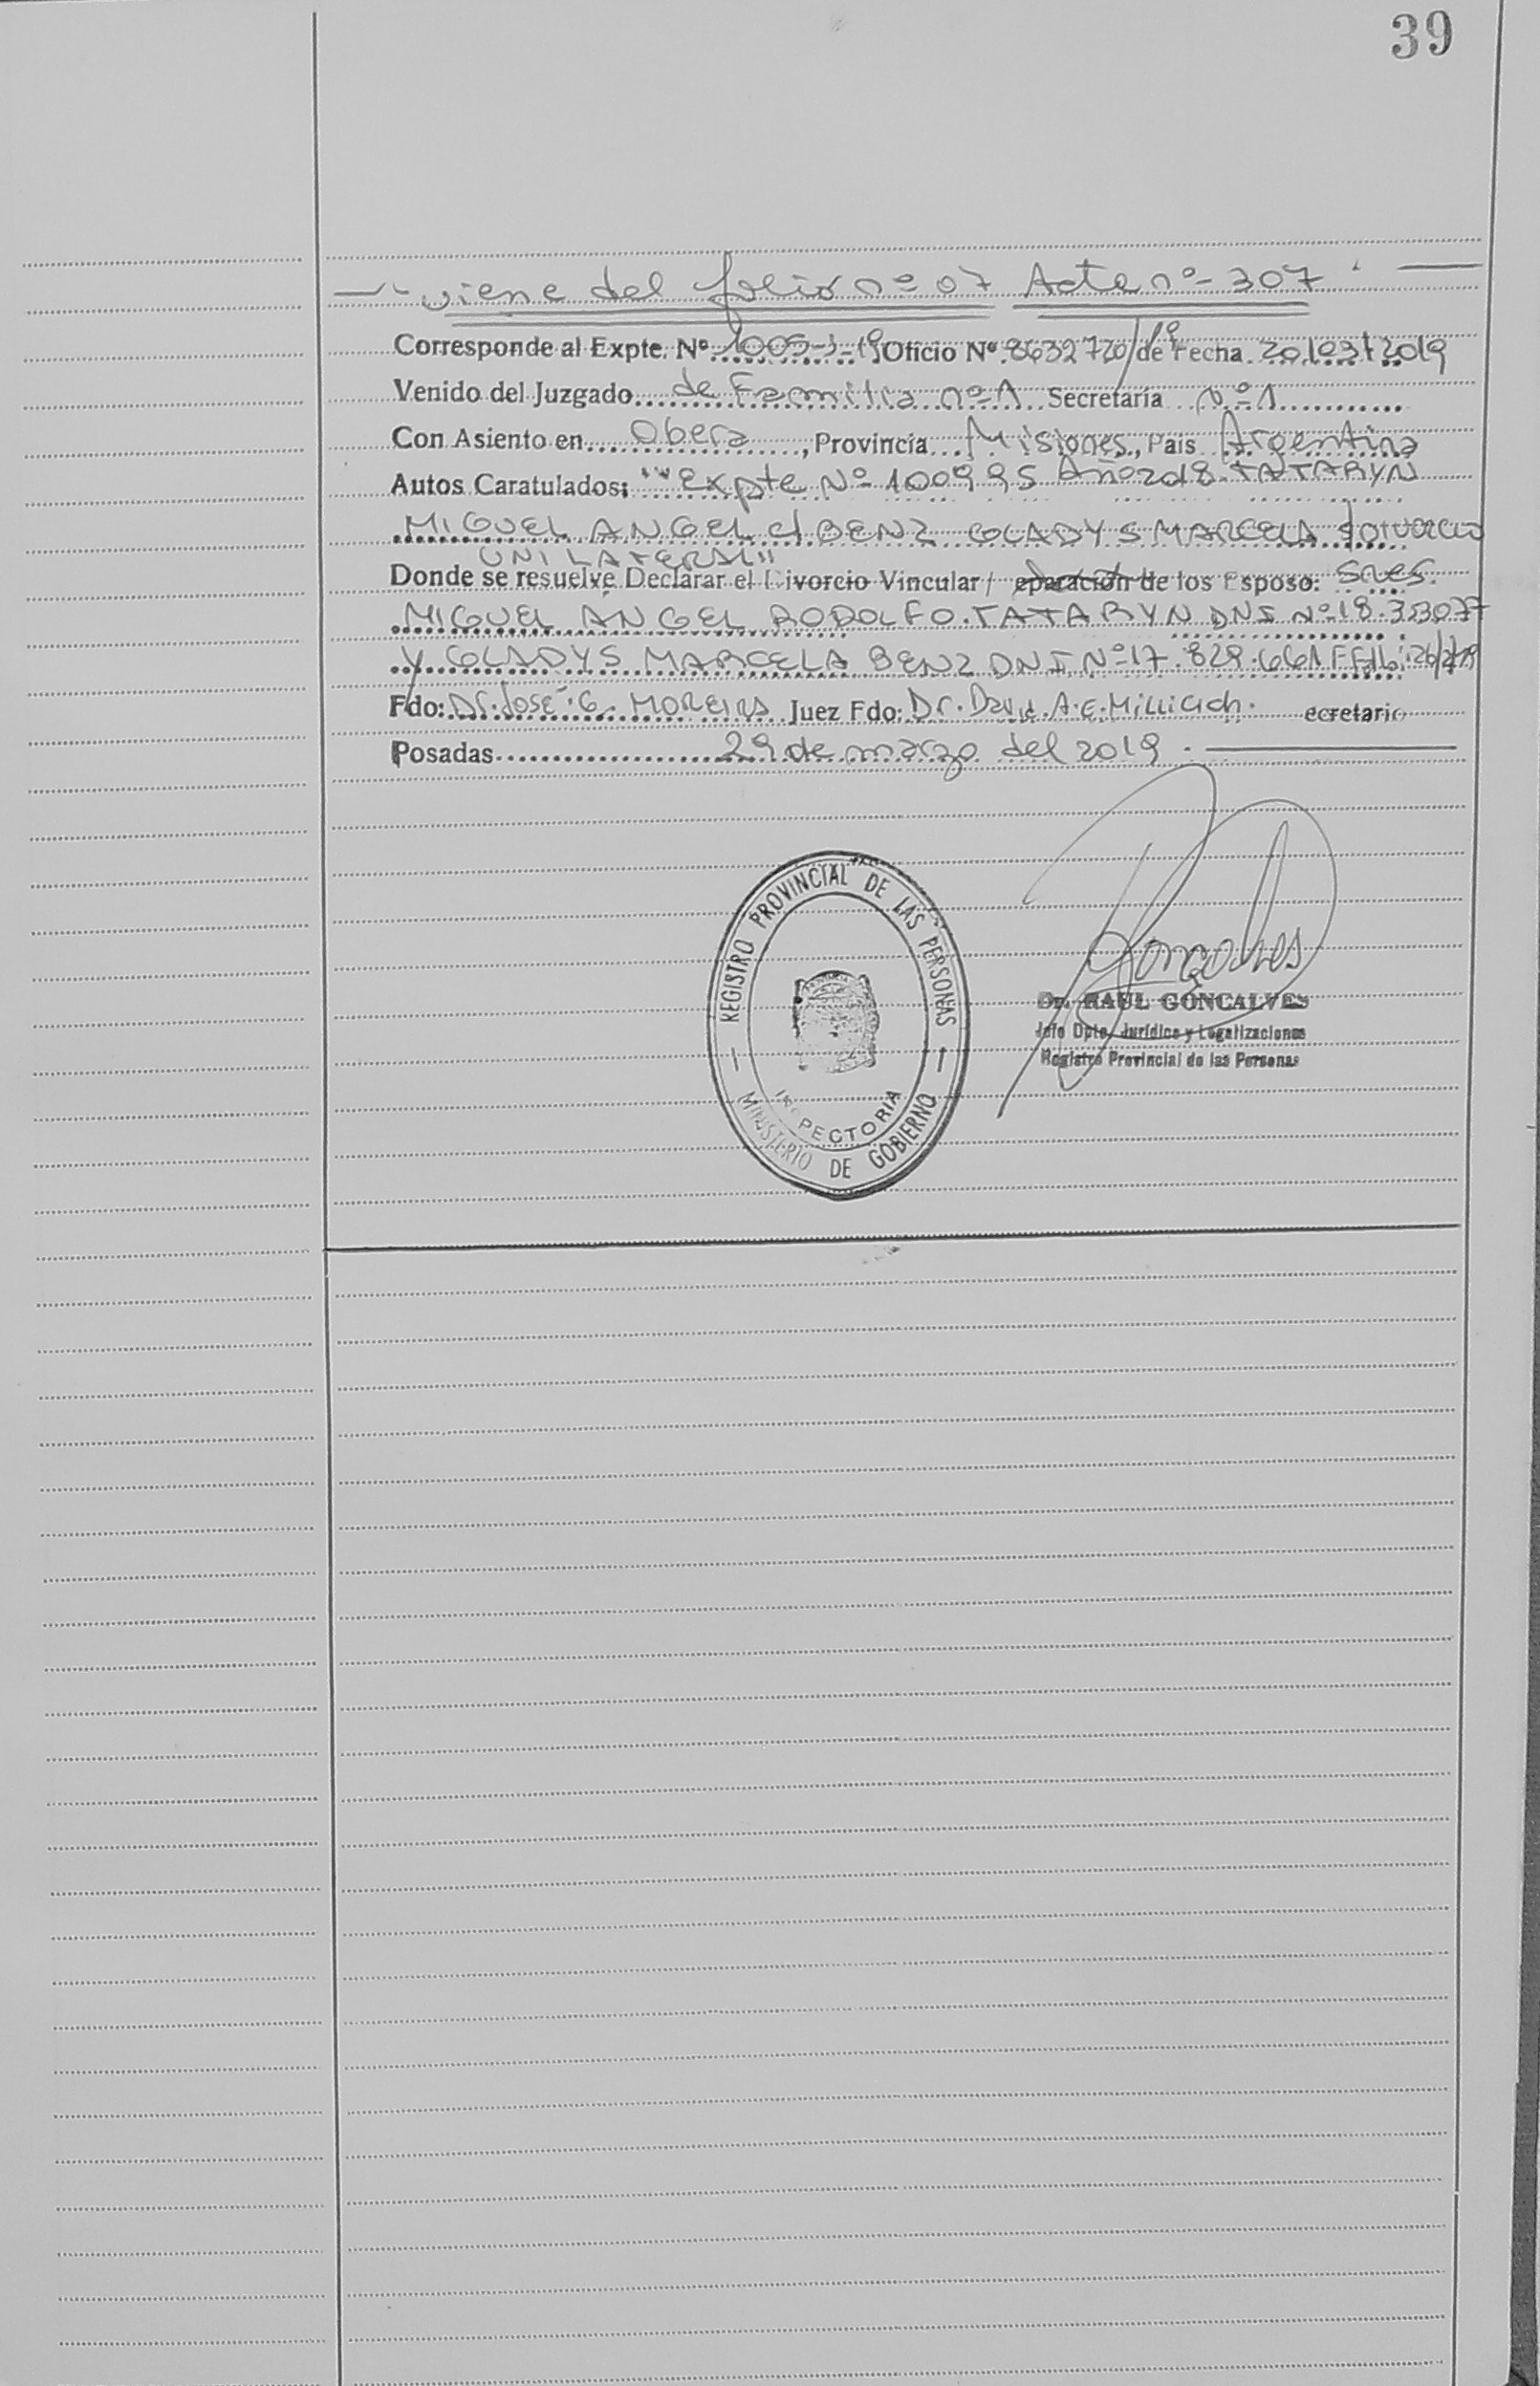 39
viene del folio nº 07 Acta nº - 307
Corresponde al Expte. Nº 1005-J-19 Oficio Nº 8632720/19 de Fecha 20/03/2019
Venido del Juzgado de Familia nº 1 Secretaría Nº 1
Con Asiento en Obera, Provincia Misiones, País Argentina
Autos Caratulados: "Expte Nº 100995 Año 2018 TATARYN
MIGUEL ANGEL c/ BENZ GLADYS MARCELA s/ DIVORCIO
UNILATERAL"
Donde se resuelve Declarar el Divorcio Vincular / eparación de los Esposo: Sres.
MIGUEL ANGEL RODOLFO TATARYN DNI Nº 18.333077
Y GLADYS MARCELA BENZ DNI Nº 17.829.661
Fdo: Dr. José G. MOREIRA Juez Fdo: Dr. David A.E. Millicich. ecretario
Posadas 29 de marzo del 2019.
REGISTRO PROVINCIAL DE LAS PERSONAS
INSPECTORIA
MINISTERIO DE GOBIERNO
Goncalves
Dr. RAUL GONCALVES
Jefe Dpto. Jurídico y Legalizaciones
Registro Provincial de las Personas